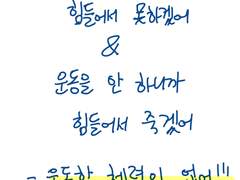 힘들어서 못하겠어
&
운동을 안 하니까
힘들어서 죽겠어
운동할 체력이 없어!!!